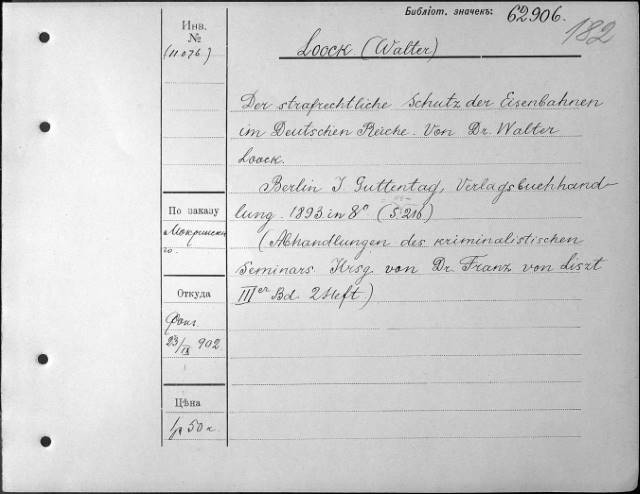 Библіот. значекъ: 62906.
182
Инв.
№
(11076)
Loock (Walter)
Der strafrechtliche Schutz der Eisenbahnen
im Deutschen Reiche. Von Dr. Walter
Loock.
Berlin J. Guttentag, Verlagsbuchhand-
lung. 1893 in 8° (S. 216)
(Abhandlungen des kriminalistischen
Seminars Hrsg. von Dr. Franz von Liszt
III er Bd. 2 Heft.)
По заказу
Мокринска
го.
Откуда
23/IX 902.
Цѣна
1 р 50 к.